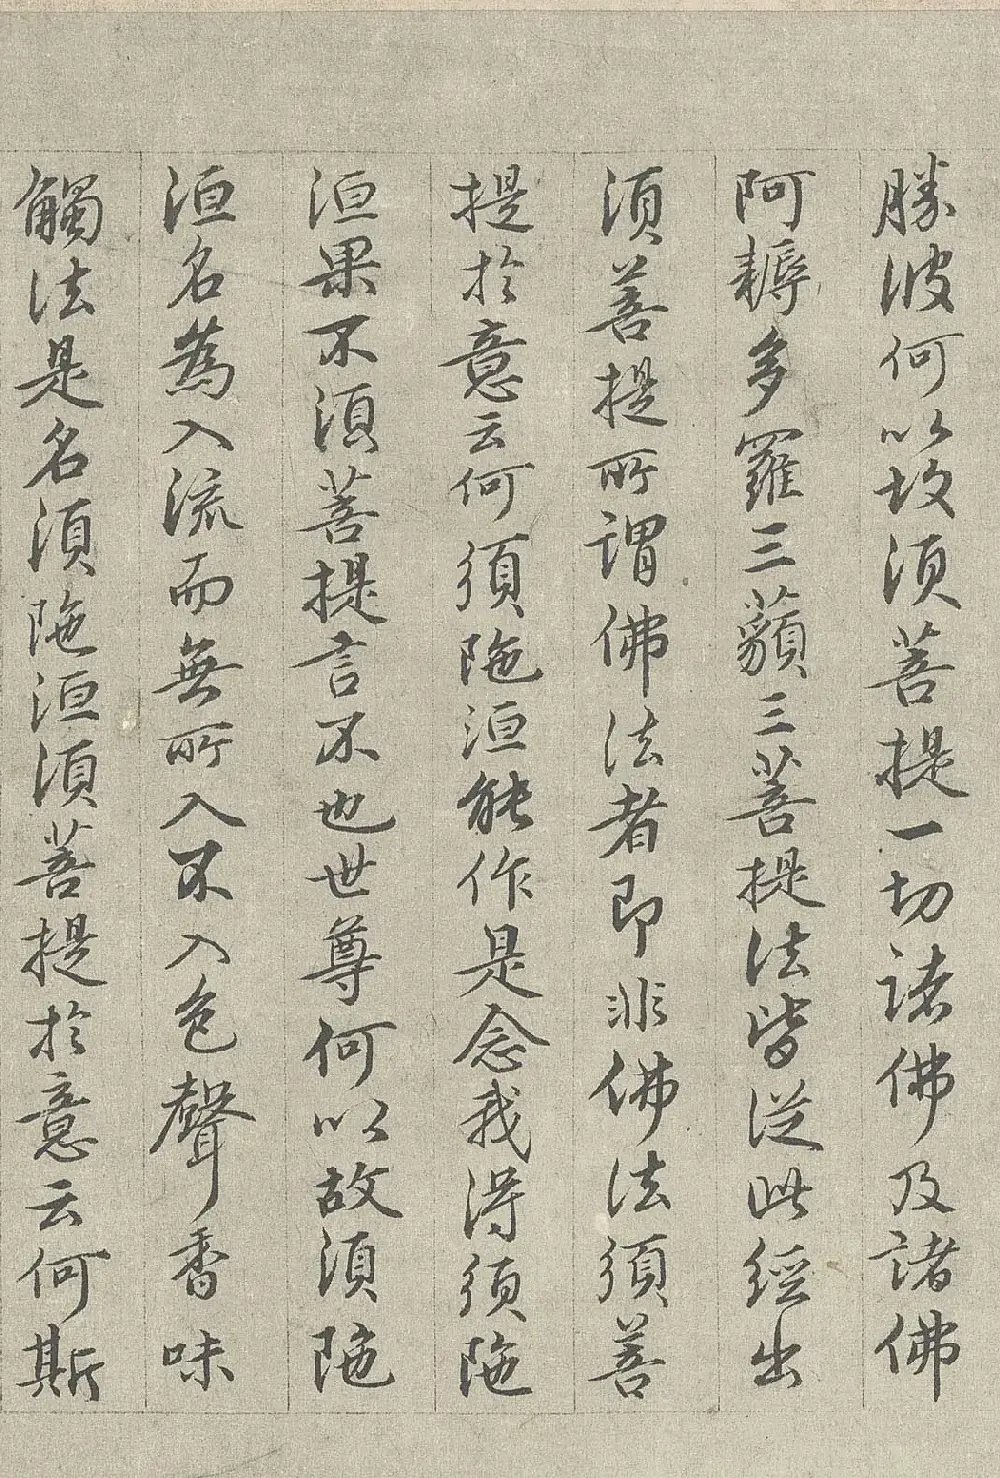 勝彼何以故須菩提一切諸佛及諸佛
阿耨多羅三藐三菩提法皆從此經出
須菩提所謂佛法者即非佛法須菩
提於意云何須陁洹能作是念我得須陁
洹果不須菩提言不也世尊何以故須陁
洹名為入流而無所入不入色聲香味
觸法是名須陁洹須菩提於意云何斯